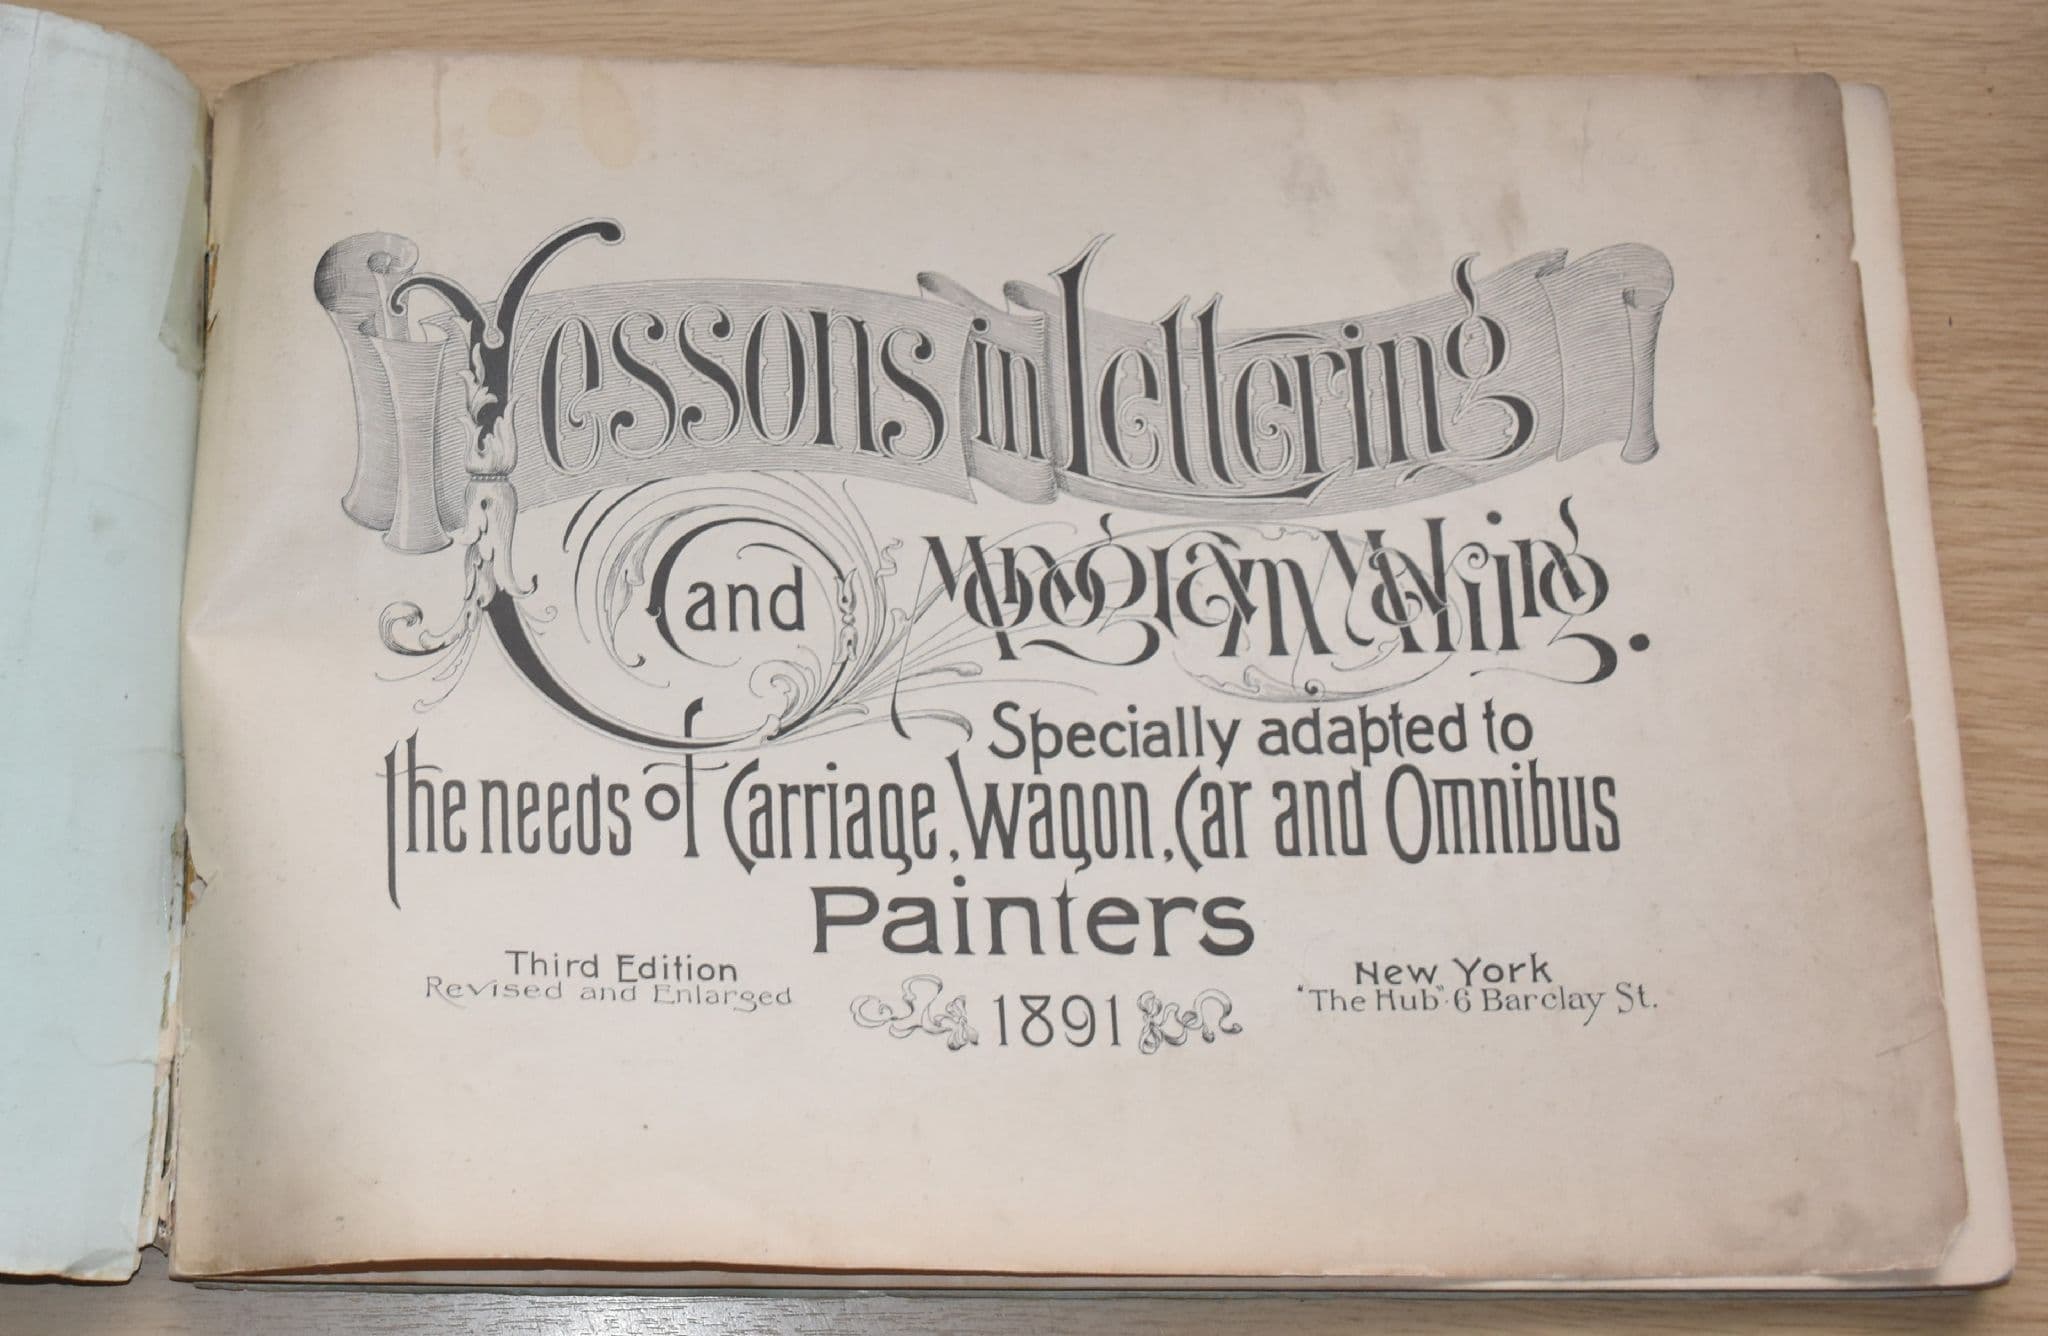 Lessons in Lettering
and Monogram Making.
Specially adapted to
the needs of Carriage, Wagon, Car and Omnibus
Painters
Third Edition
Revised and Enlarged
1891
New York
"The Hub" 6 Barclay St.